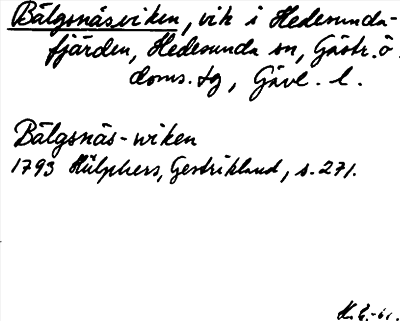 Bälgsnäsviken, vik i Hedesunda-
fjärden, Hedesunda sn, Gästr. ö.
doms. tg, Gävl. l.
Bälgsnäs-wiken
1793 Hülphers, Gestrikland, s. 271.